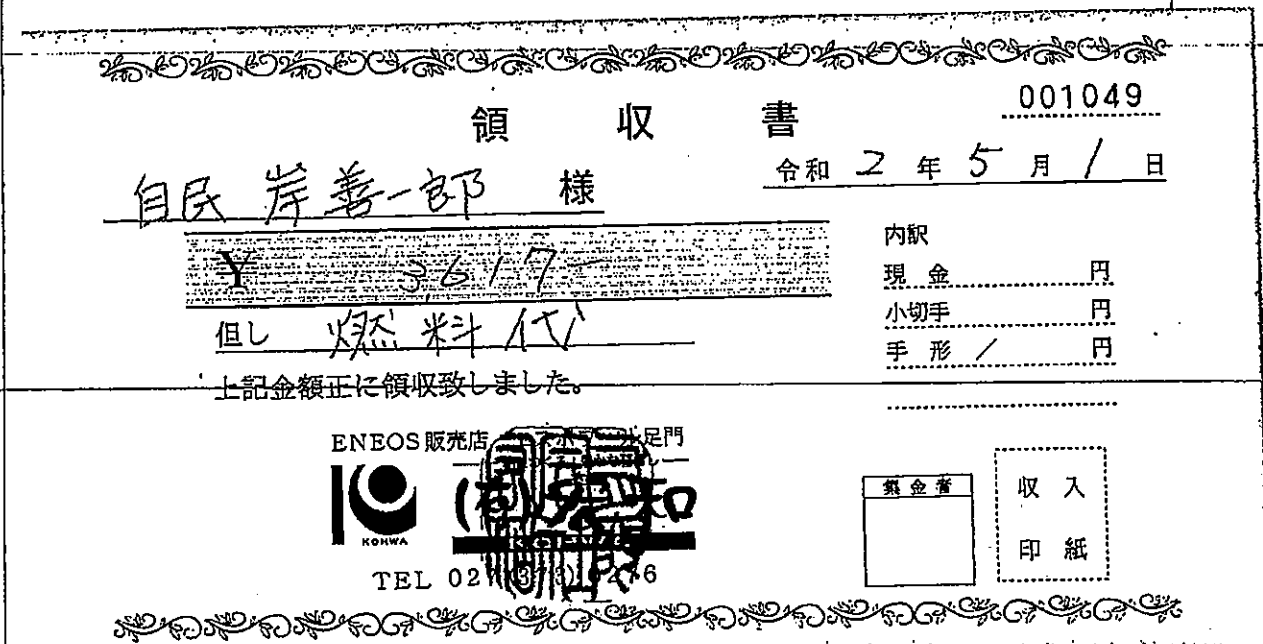 領収書
001049
令和 2 年 5 月 1 日
自民 岸善一郎 様
¥ 3,617-
但し 燃料代
上記金額正に領収致しました。
内訳
現金 円
小切手 円
手形 / 円
ENEOS販売店 足門
KOHWA
TEL 027
集金者
収入
印紙